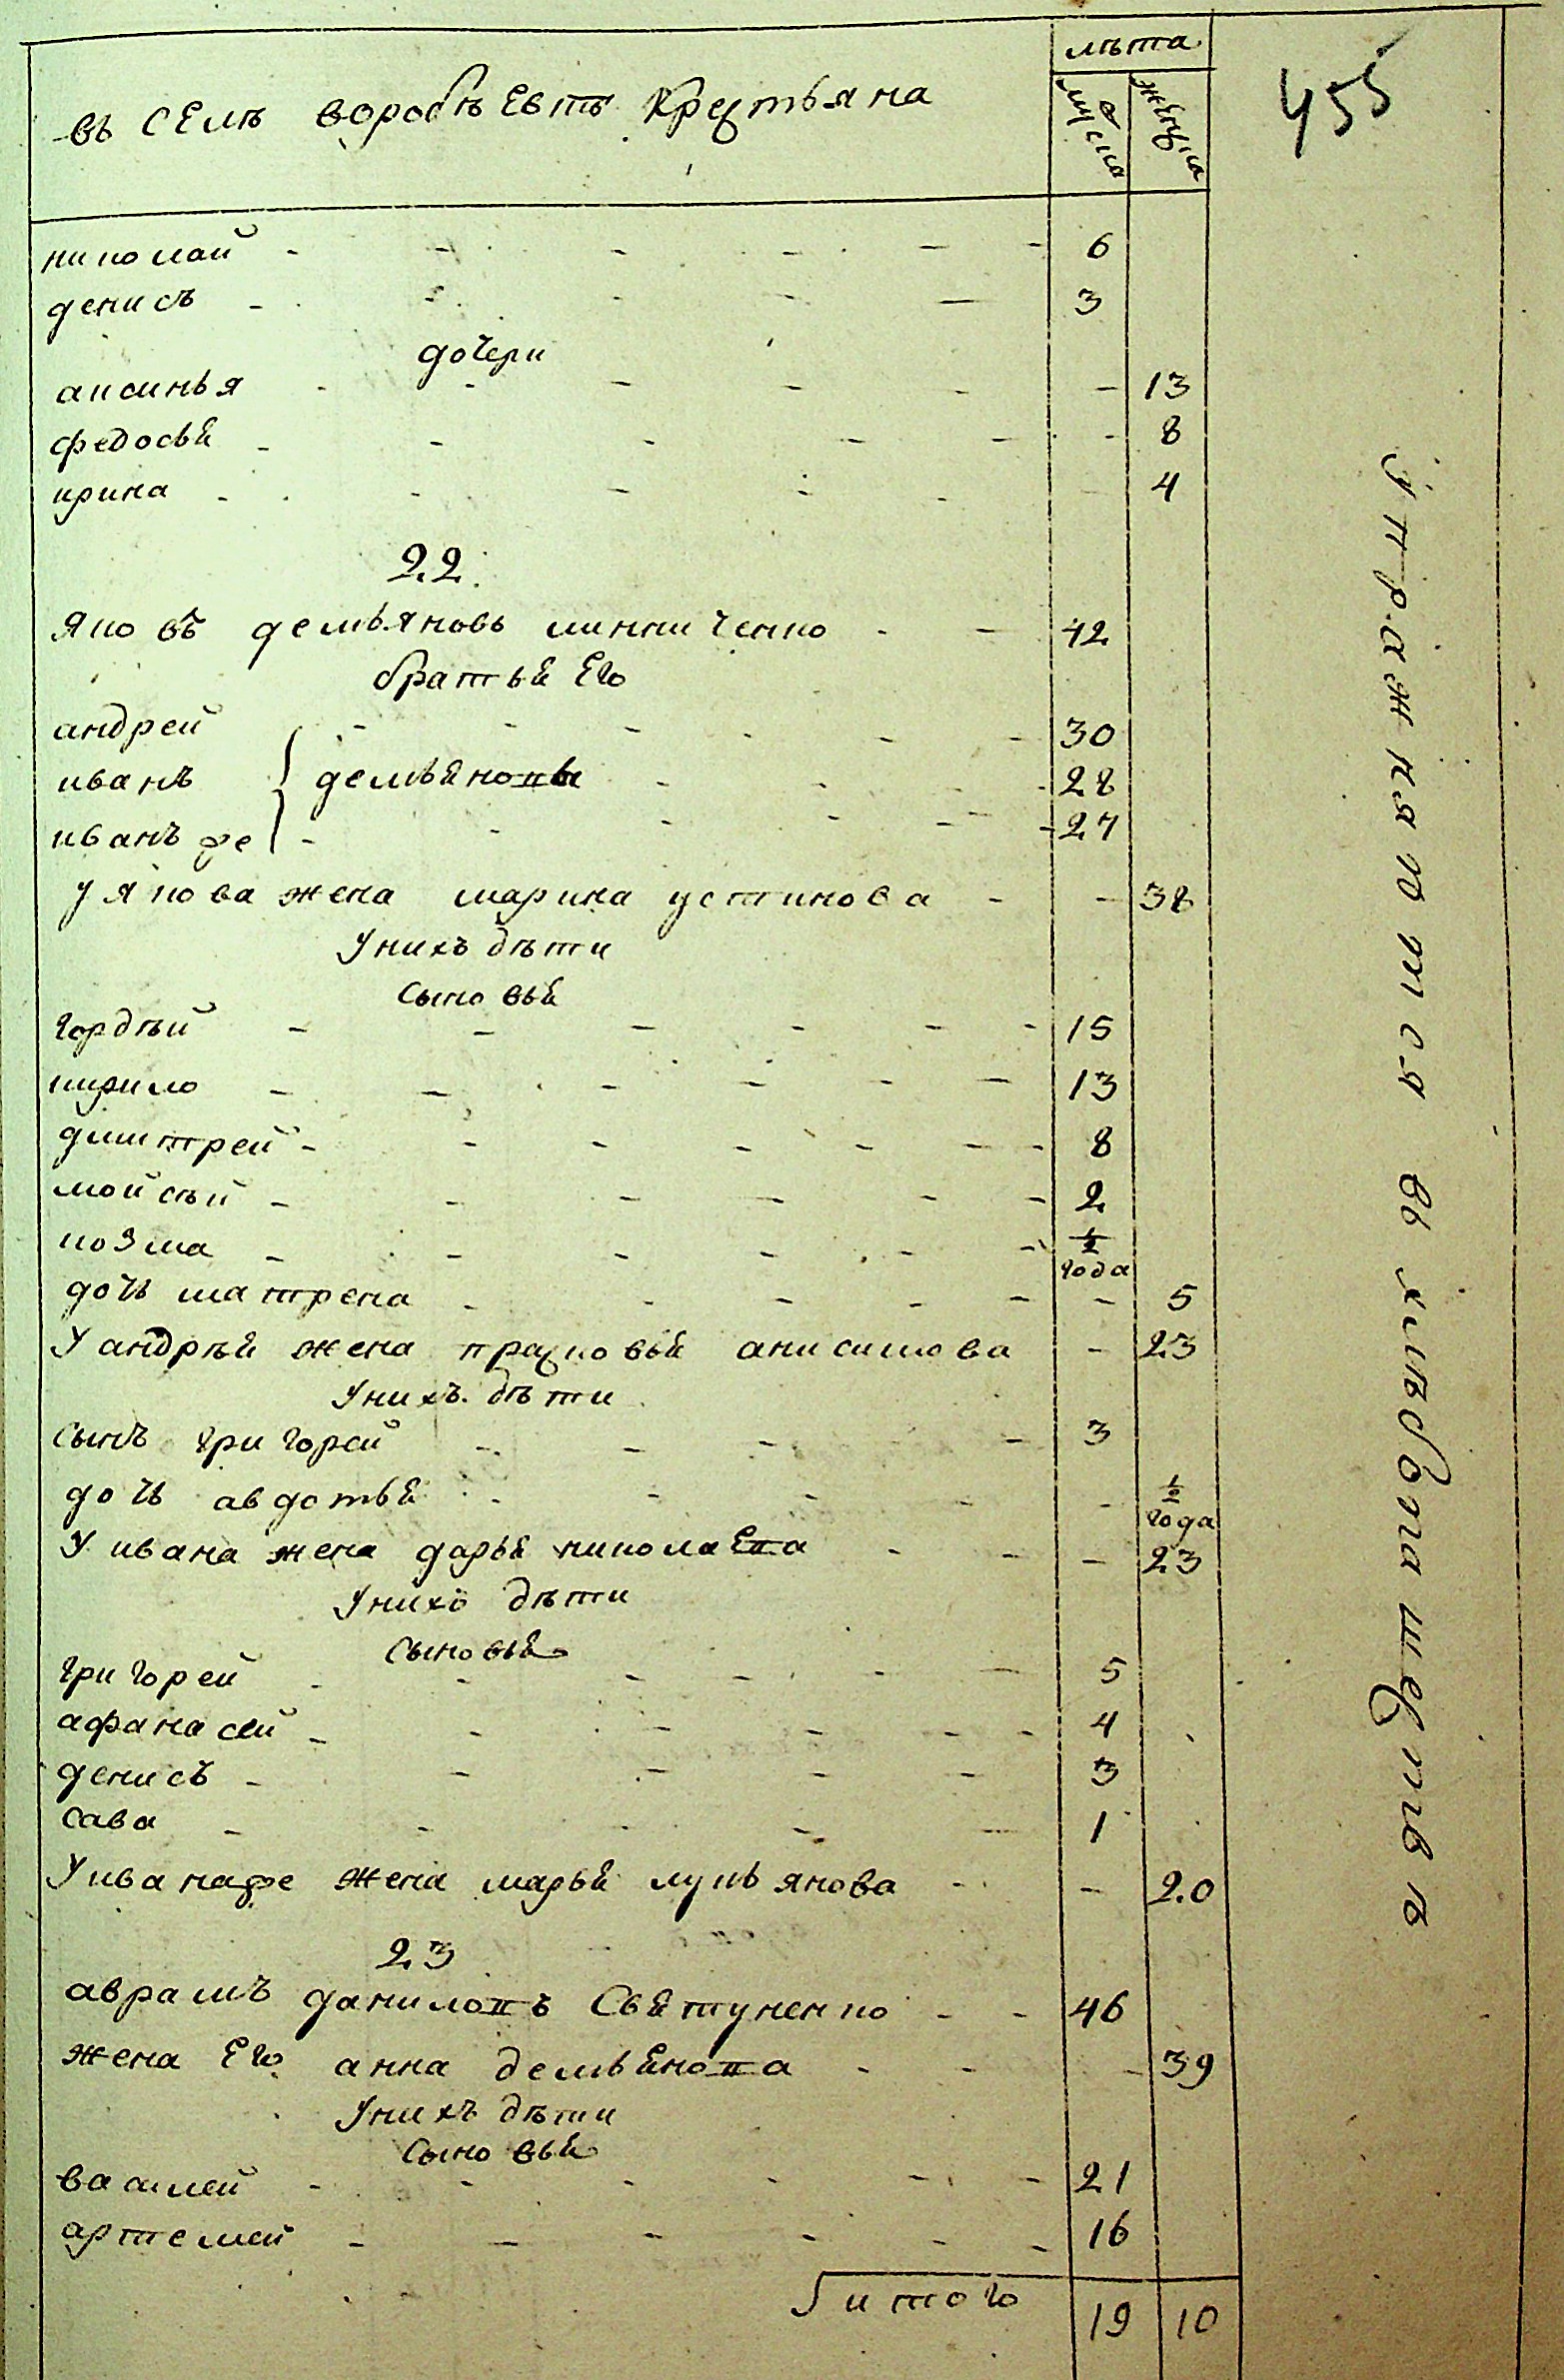 лѣта
въ селѣ воробъевтъ крестьяна
муска
женска
455
николай - - - - - - 6
денисъ - - - - - 3
дочери
аксинья - - - - - - 13
федосья - - - - - - 8
ирина - - - - - 4
22
яковъ демьяновъ минниченко - - 42
братья его
андрей - - - - - - 30
иванъ демьяновы - - - - 28
иванъ же - - - - - - 27
у якова жена марина устинова - - 38
у нихъ дѣти
сыновья
гордѣй - - - - - - 15
кирило - - - - - - 13
дмитрей - - - - - - 8
мойсѣй - - - - - - 2
козма - - - - - - ½
года
дочь матрена - - - - - - 5
У андрѣя жена прасковья анисимова - 23
у нихъ дѣти
сынъ григорей - - - - 3
дочь авдотья - - - - - ½
года
У ивана жена дарья николаева - - - 23
у нихъ дѣти
сыновья
григорей - - - - - - 5
афанасей - - - - - - 4
денисъ - - - - - 3
сава - - - - - 1
У ивана же жена марья лукьянова - - 20
23
аврамъ даниловъ Святуненко - - 46
жена его анна демьянова - - - 39
у нихъ дѣти
сыновья
василей - - - - - - 21
артемей - - - - - - 16
итого 19 10
упражняются въ хлѣбопашествѣ